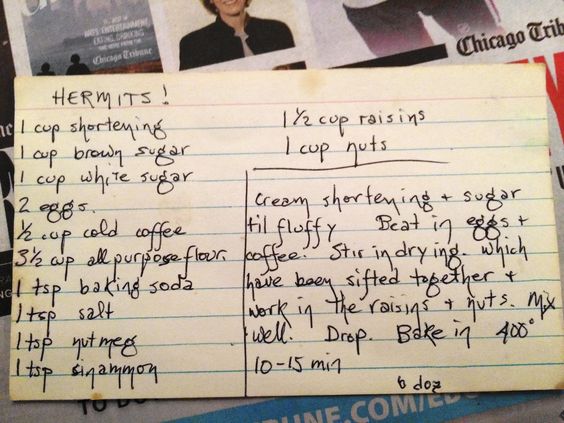 ARTS+ENTERTAINMENT,
EATING, DRINKING
Chicago Tribune
Chicago Trib
HERMITS!
1 cup shortening
1 cup brown sugar
1 cup white sugar
2 eggs.
½ cup cold coffee
3½ cup all purpose flour.
1 tsp baking soda
1 tsp salt
1 tsp nutmeg
1 tsp sinammon
1 ½ cup raisins
1 cup nuts
Cream shortening + sugar
til fluffy Beat in eggs +
coffee. Stir in dry ing. which
have been sifted together +
work in the raisins + nuts. Mix
well. Drop. Bake in 400°
10-15 min
6 doz
TO D
UNE.COM/